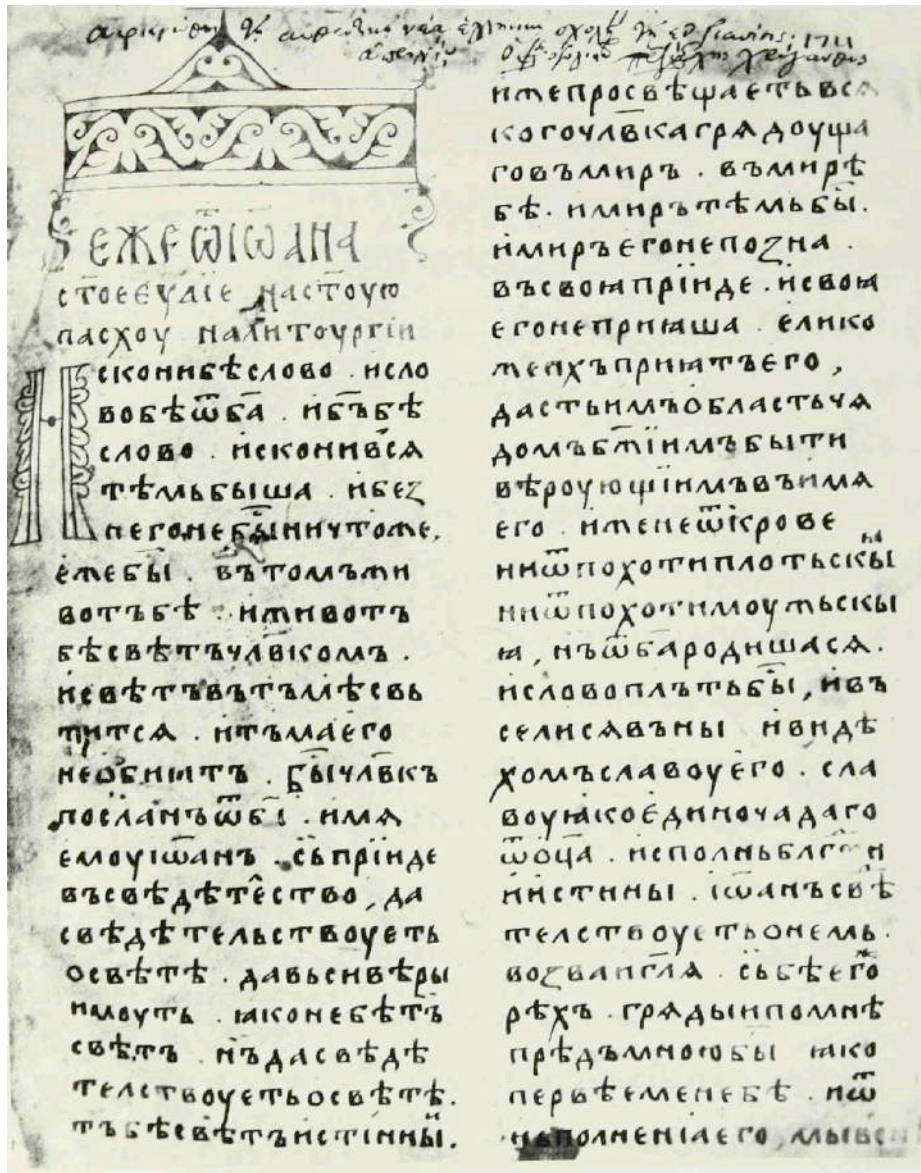 ЕЖЕ Ѿ ІѠАНА
ст҃ое еѵ҃лїе на ст҃ѹю
пасхоу налитоургїи
Искони бѣ слово . и сло
во бѣ ѿ б҃а . и б҃ъ бѣ
слово . искони всѧ
тѣмь быша . и без
него не бы҃ ничтоже,
еже бы҃ . въ томъ жи
вотъ бѣ . и животъ
бѣ свѣтъ чл҃вкомъ .
и свѣтъ въ тъмѣ свь
тится . и тъма его
не обиꙗтъ . бы҃ чл҃вкъ
посланъ ѿ б҃і . имꙗ
емоу іѡанъ . сь прїиде
въ свѣдѣтество , да
свѣдѣтельствоуеть
о свѣтѣ . да вьси вѣры
имоуть . ꙗко не бѣ тъ
свѣтъ . нъ да свѣдѣ
телствоуеть о свѣтѣ .
тъ бѣ свѣтъ истінныі .
иже просвѣщаеть вся
кого чл҃вка грядоуща
го въ миръ . въ мирѣ
бѣ . и миръ тѣмь бы҃ .
и миръ его не позна .
въ своꙗ прїиде . и своꙗ
его не приꙗша . елико
же ихъ приꙗтъ его ,
дасть имъ область чя
домъ бж҃їимъ быти
вѣроующїимъ въ имя
его . иже не ѿ крове
ни ѿ похоти плотьскыꙗ
ни ѿ похоти моужьскы
ꙗ , нъ ѿ б҃а родишася .
и слово плъть бы҃ , и въ
селися въ ны и видѣ
хомъ славоу его . сла
воу ꙗко единочадаго
ѿ оц҃а . исполнь
и истины . іѡанъ свѣ
телствоуеть о немь .
возва и гл҃я . сь бѣ его҃
рѣхъ . грядыи по мнѣ
прѣдъ мною бы ꙗко
первѣе мене бѣ . и ѿ
исполненіа его , мы вси